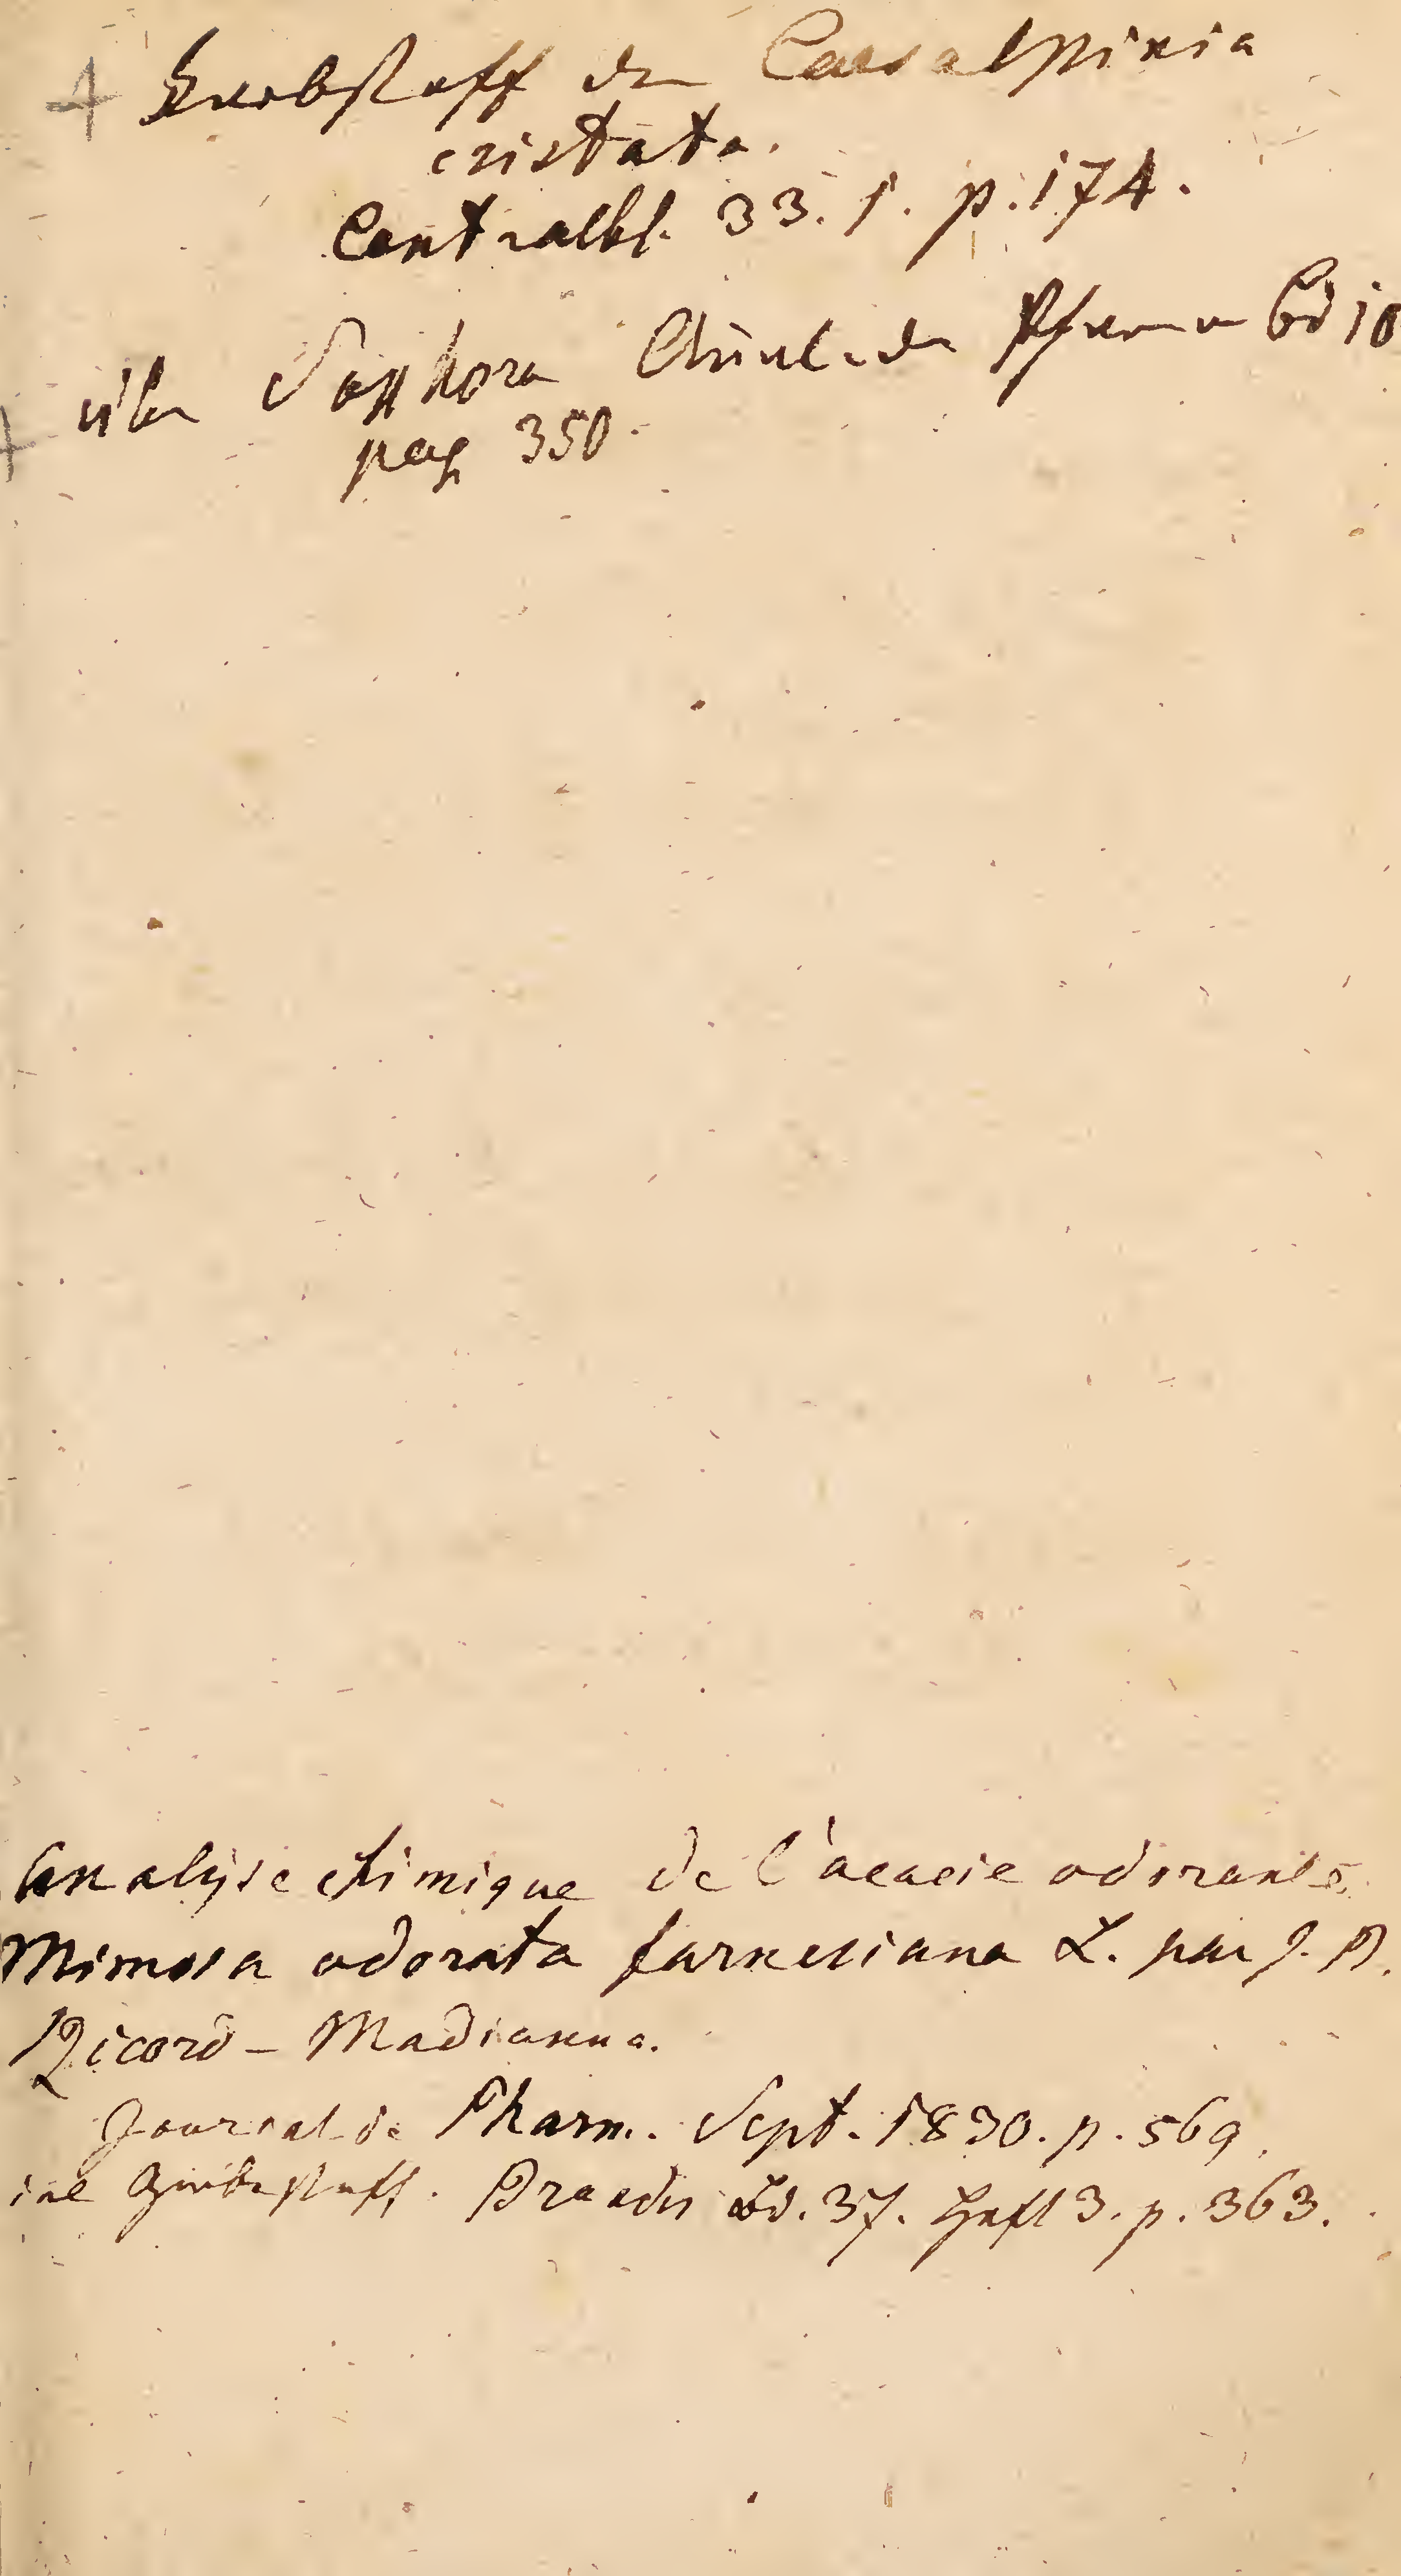 Farbstoff der Caesalpinia
cristata.
Centralbl. 33. 1. p. 174.
über Sophora Annal. der Pharm Bd 10
pag 350.
Analyse chimique de l'acacie odorante,
Mimosa odorata farnesiana L. par J. B.
Ricord - Madianna.
Journal de Pharm. Sept. 1830. p. 569.
Gerbestoff. Brandes Bd. 37. Heft 3. p. 363.